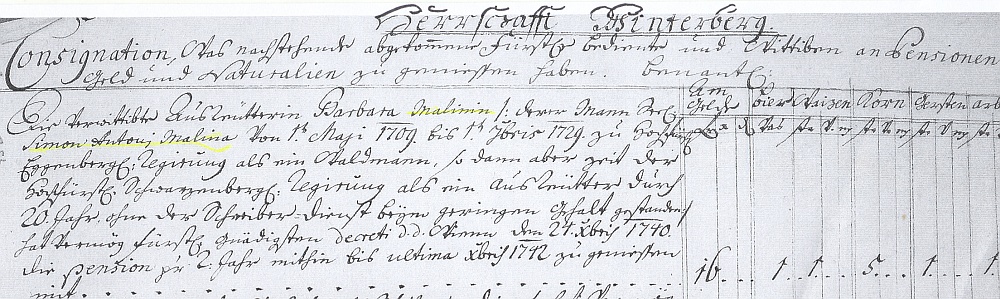 Herrschafft Winterberg.
Consignation, Was nachstehende abgekommene Fürstl. bediente und Wittiben an Pensionen
Geld und Naturalien zu geniessen haben. Benantl:
Am Gelde Bier Waizen Korn Gersten arb
Die verwittibte Ausreutterin Barbara Malinin /: derer Mann Seel.
Simon Antonj Malina von 1t Maji 1709. bis 1t 7bris 1729. zu Hochfürstl.
Eggenbergl: Regierung als ein Waldmann, so dann aber zeit der
Hochfürstl. Schwarzenbergl: Regierung als ein Ausreutter durch
20. Jahr, ohne der Schreiber-Dienst beym geringen Gehalt gestanden :/
hat vermög Fürstl. gnädigsten decreti d.d. Wienn den 24. Xbris 1740.
die pension zu 2. Jahr mithin bis ultima Xbris 1742 zu geniessen
mit . . . . . 16 . . 1 . . 1 . . 5 . . 1 . . 1